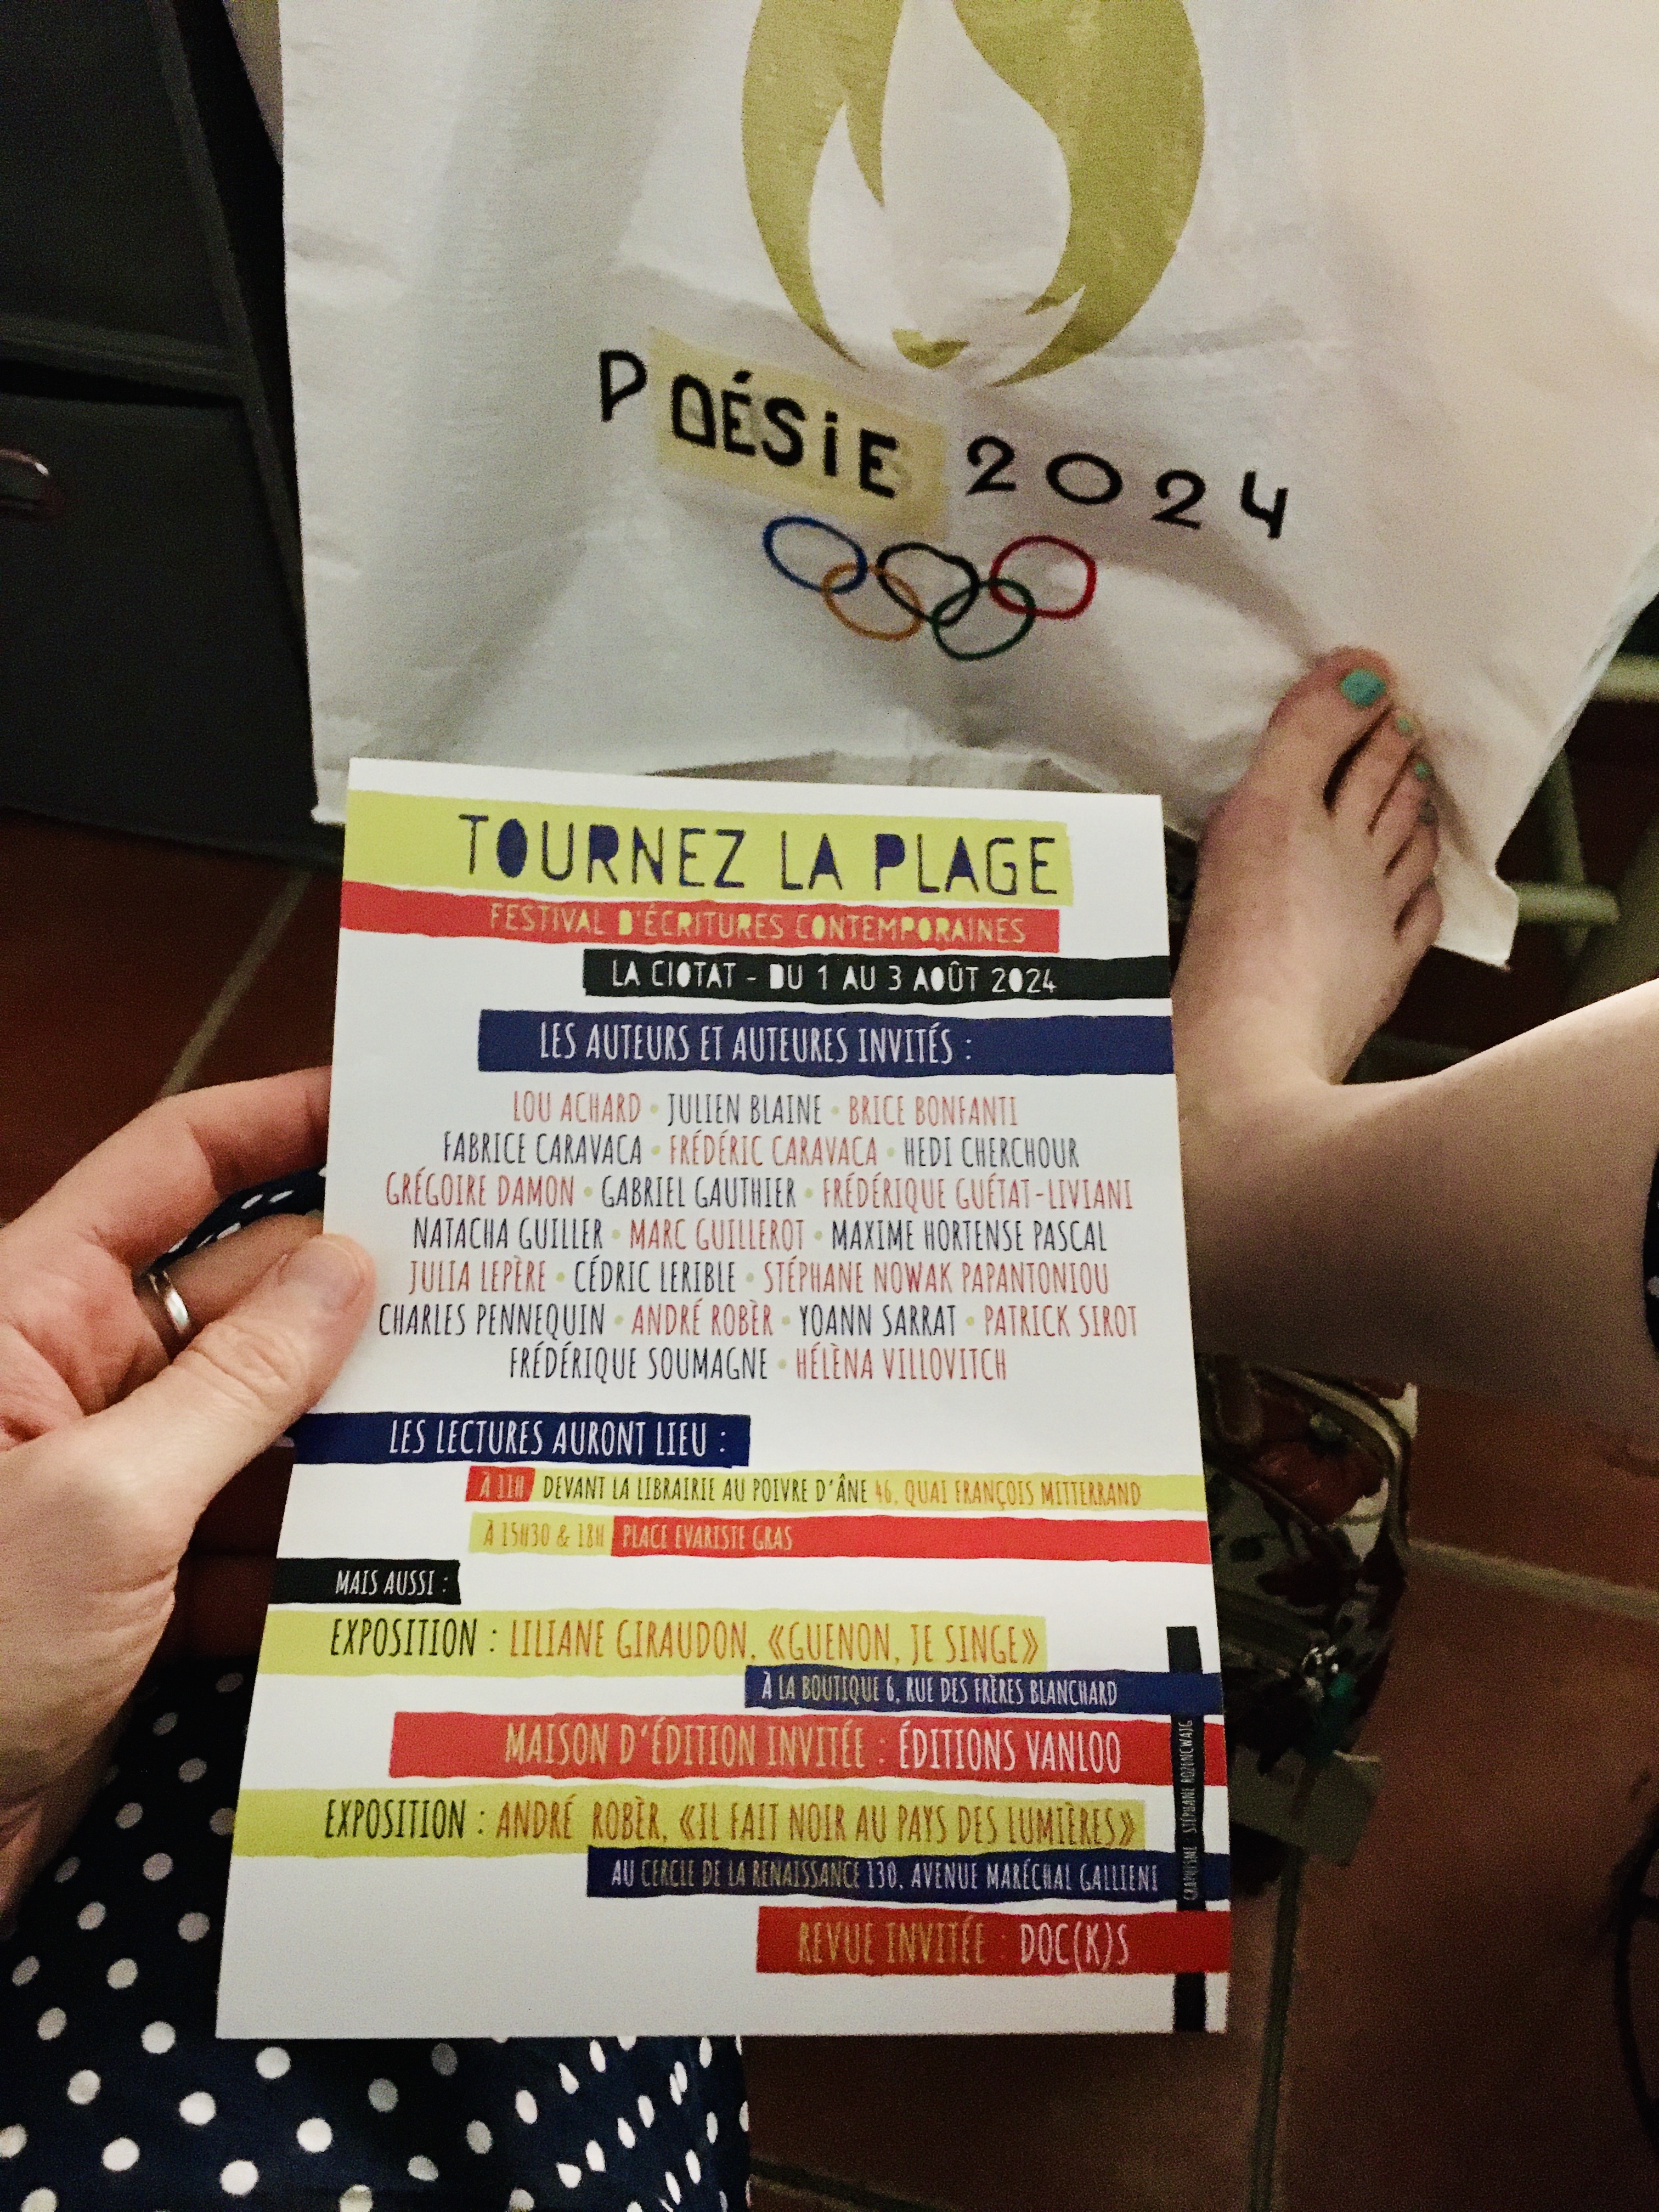 POÉSiE 2024
TOURNEZ LA PLAGE
FESTIVAL D'ÉCRITURES CONTEMPORAINES
LA CIOTAT - DU 1 AU 3 AOÛT 2024
LES AUTEURS ET AUTEURES INVITÉS :
LOU ACHARD • JULIEN BLAINE • BRICE BONFANTI
FABRICE CARAVACA • FRÉDÉRIC CARAVACA • HEDI CHERCHOUR
GRÉGOIRE DAMON • GABRIEL GAUTHIER • FRÉDÉRIQUE GUÉTAT-LIVIANI
NATACHA GUILLER • MARC GUILLEROT • MAXIME HORTENSE PASCAL
JULIA LEPÈRE • CÉDRIC LERIBLE • STÉPHANE NOWAK PAPANTONIOU
CHARLES PENNEQUIN • ANDRÉ ROBÈR • YOANN SARRAT • PATRICK SIROT
FRÉDÉRIQUE SOUMAGNE • HÉLÈNA VILLOVITCH
LES LECTURES AURONT LIEU :
À 11H DEVANT LA LIBRAIRIE AU POIVRE D'ÂNE 46, QUAI FRANÇOIS MITTERRAND
À 15H30 & 18H PLACE EVARISTE GRAS
MAIS AUSSI :
EXPOSITION : LILIANE GIRAUDON, «GUENON, JE SINGE»
À LA BOUTIQUE 6, RUE DES FRÈRES BLANCHARD
MAISON D'ÉDITION INVITÉE : ÉDITIONS VANLOO
EXPOSITION : ANDRÉ ROBÈR, «IL FAIT NOIR AU PAYS DES LUMIÈRES»
AU CERCLE DE LA RENAISSANCE 130, AVENUE MARÉCHAL GALLIENI
REVUE INVITÉE : DOC(K)S
GRAPHISME : STÉPHANE ROZENCWAJG